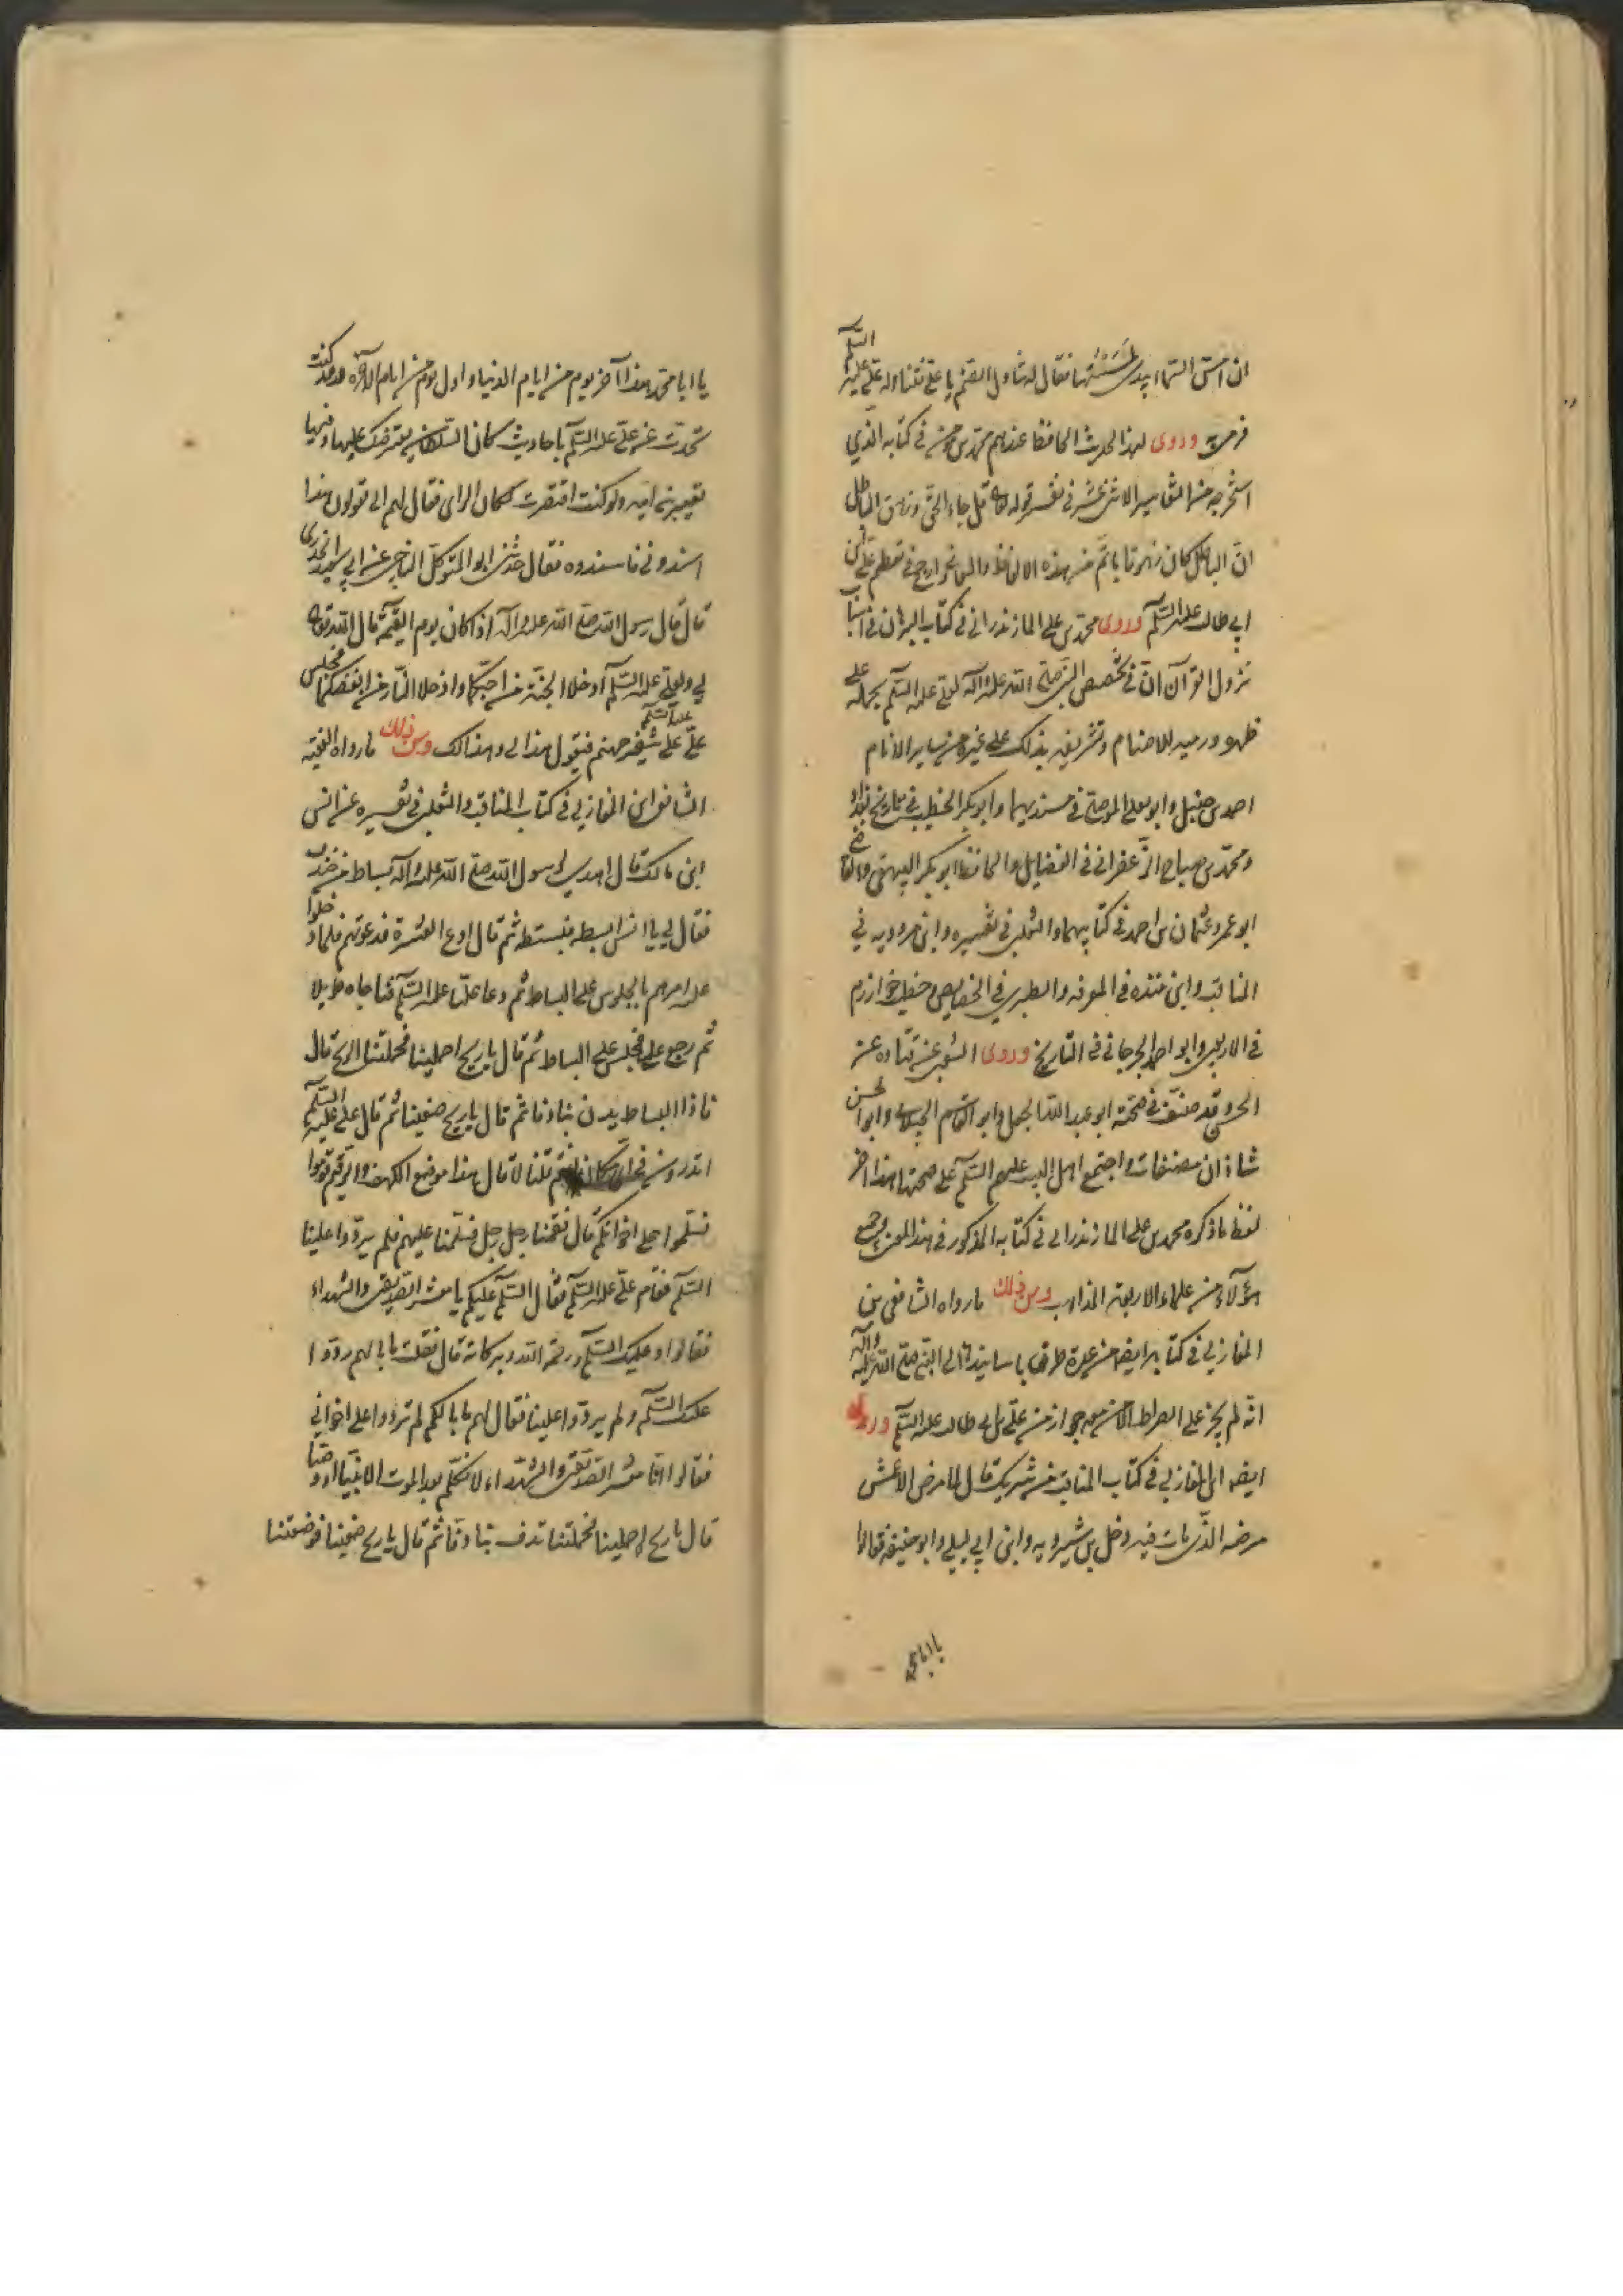 ان امسّ السّماء بيدى لمسستها فقال له تناول الصنم يا على فتناوله علىّ عليه السّلم
فرمى به وروى هذا الحديث الحافظ عندهم محمّد بن مؤمن فى كتابه الّذي
استخرجه من التفاسير الاثنى عشر فى تفسير قوله تعالى قل جاء الحقّ وزهق الباطل
انّ الباطل كان زهوقا باتمّ من هذه الالفاظ والمعانى وارجح فى تعظيم علىّ بن
ابي طالب عليه السّلم وروى محمّد بن على المازندرانى فى كتاب البرهان فى اسباب
نزول القرآن انّ فى تخصيص النبى صلّى الله عليه وآله لعلىّ عليه السّلم بحمله على
ظهره ورميه للاصنام وتشريفه بذلك على غيره من ساير الانام
احمد بن حنبل وابو يعلى الموصلى فى مسنديهما وابو بكر الخطيب فى تاريخ بغداد
ومحمّد بن صباح الزّعفرانى فى الفضايل والحافظ ابو بكر البيهقى والقاضى
ابو عمرو عثمان بن احمد فى كتابيهما والثعلبى فى تفسيره وابن مردويه فى
المناقب وابن منده فى المعرفه والطبرى فى الخصايص وخطيب خوارزم
فى الاربعين وابو احمد الجرجانى فى التاريخ وروى الشعبى عن قتاده عن
الحسن وقد صنّف فى صحّته ابو عبد الله الجعل وابو القاسم الحسكانى وابو الحسن
شاذان مصنفات واجتمع اهل البيت عليهم السّلم على صحتها هذا آخر
لفظ ما ذكره محمد بن على المازندرانى فى كتابه المذكور فى هذا المعنى وجميع
هؤلآء من علماء الاربعة المذاهب ومن ذلك ما رواه الشافعى بن
المغازلي فى كتابه ايضا من عدة طرق باسانيدها الى النبى صلّى الله عليه وآله
انّه لم يجز على الصراط الّا من معه جواز من علىّ بن ابي طالب عليه السّلم وروى
ايضا ابن المغازلي فى كتاب المناقب عن شريك قال لما مرض الاعمش
مرضه الّذى مات فيه دخل بن شبرمه وابن ابي ليلى وابو حنيفه فقالوا
يا ابا محمّد
يا ابا محمّد هذا آخر يوم من ايام الدنيا واول يوم من ايام الآخره وقد كنت
تحدّث عن علىّ عليه السّلم باحاديث كان السّلطان يعترضك عليها وفيها
تعيير بنى اميه ولو كنت اقتصرت لكان الراى فقال لهم الى تقولون هذا
اسندونى فاسندوه فقال حدّثنى ابو المتوكل الناجى عن ابي سعيد الخدرى
قال قال رسول الله صلّى الله عليه وآله اذا كان يوم القيمة قال الله تعالى
لي ولعلىّ عليه السّلم ادخلا الجنّة من احبّكما وادخلا النّار من ابغضكما فيجلس
علىّ عليه السّلم على شفير جهنم فيقول هذا لى وهذا لك ومن ذلك ما رواه الفقيه
الشافعى ابن المغازلي فى كتاب المناقب والثعلبى فى تفسيره عن انس
ابن مالك قال اهدى لرسول الله صلّى الله عليه وآله بساط من خندف
فقال لي يا انس ابسطه فبسطته ثم قال ادع العشرة فدعوتهم فلما دخلوا
عليه امرهم بالجلوس على البساط ثم دعا عليّا عليه السّلم فناجاه طويلا
ثم رجع على فجلس على البساط ثم قال يا ريح احملينا فحملتنا الريح قال
فاذا البساط يدفّ بنا دفّا ثم قال يا ريح ضعينا ثم قال على عليه السّلم
اتدرون فى اىّ مكان انتم قلنا لا قال هذا موضع الكهف والرقيم قوموا
فسلّموا على اخوانكم قال فقمنا رجل رجل فسلّمنا عليهم فلم يردّوا علينا
السّلم فقام علىّ عليه السّلم فقال السّلم عليكم يا معشر الصّديقين والشهداء
فقالوا وعليك السّلم ورحمة الله وبركاته قال فقلت ما بالهم ردّوا
عليك السّلم ولم يردّوا علينا فقال لهم ما بالكم لم تردّوا على اخوانى
فقالوا انّا معشر الصّديقين والشّهداء لا نكلّم بعد الموت الّا نبيّا او وصيّا
قال يا ريح احملينا فحملتنا تدف بنا دفّا ثم قال يا ريح ضعينا فوضعتنا